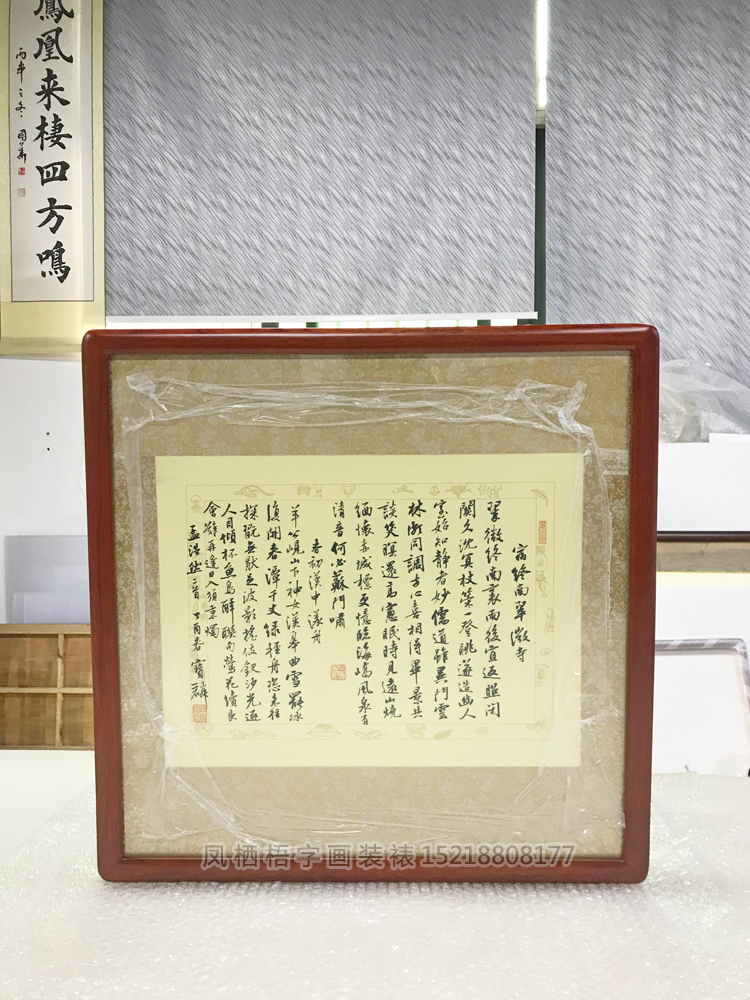 鳳凰来棲四方鳴
丙申之冬
宿終南翠微寺
翠微終南裏雨後宜返照閉
關久沈冥杖策一登眺遂造幽人
室始知静者妙儒道雖異門雲
林同調心喜相得畢景共
談笑暝還高窻眠時見遠山燒
緬懷赤城標更憶臨海嶠風泉有
清音何必蘇門嘯
春初漢中漾舟
羊公峴山下神女漢皋曲雪罷冰
復開春潭千丈緑輕舟恣來往
探翫無猒足波影摇伎釵沙光逐
人目傾杯魚鳥醉聯句鶯花續良
會難再逢日入須秉燭
孟浩然二首 丁酉春寶麟
凤栖梧字画装裱15218808177